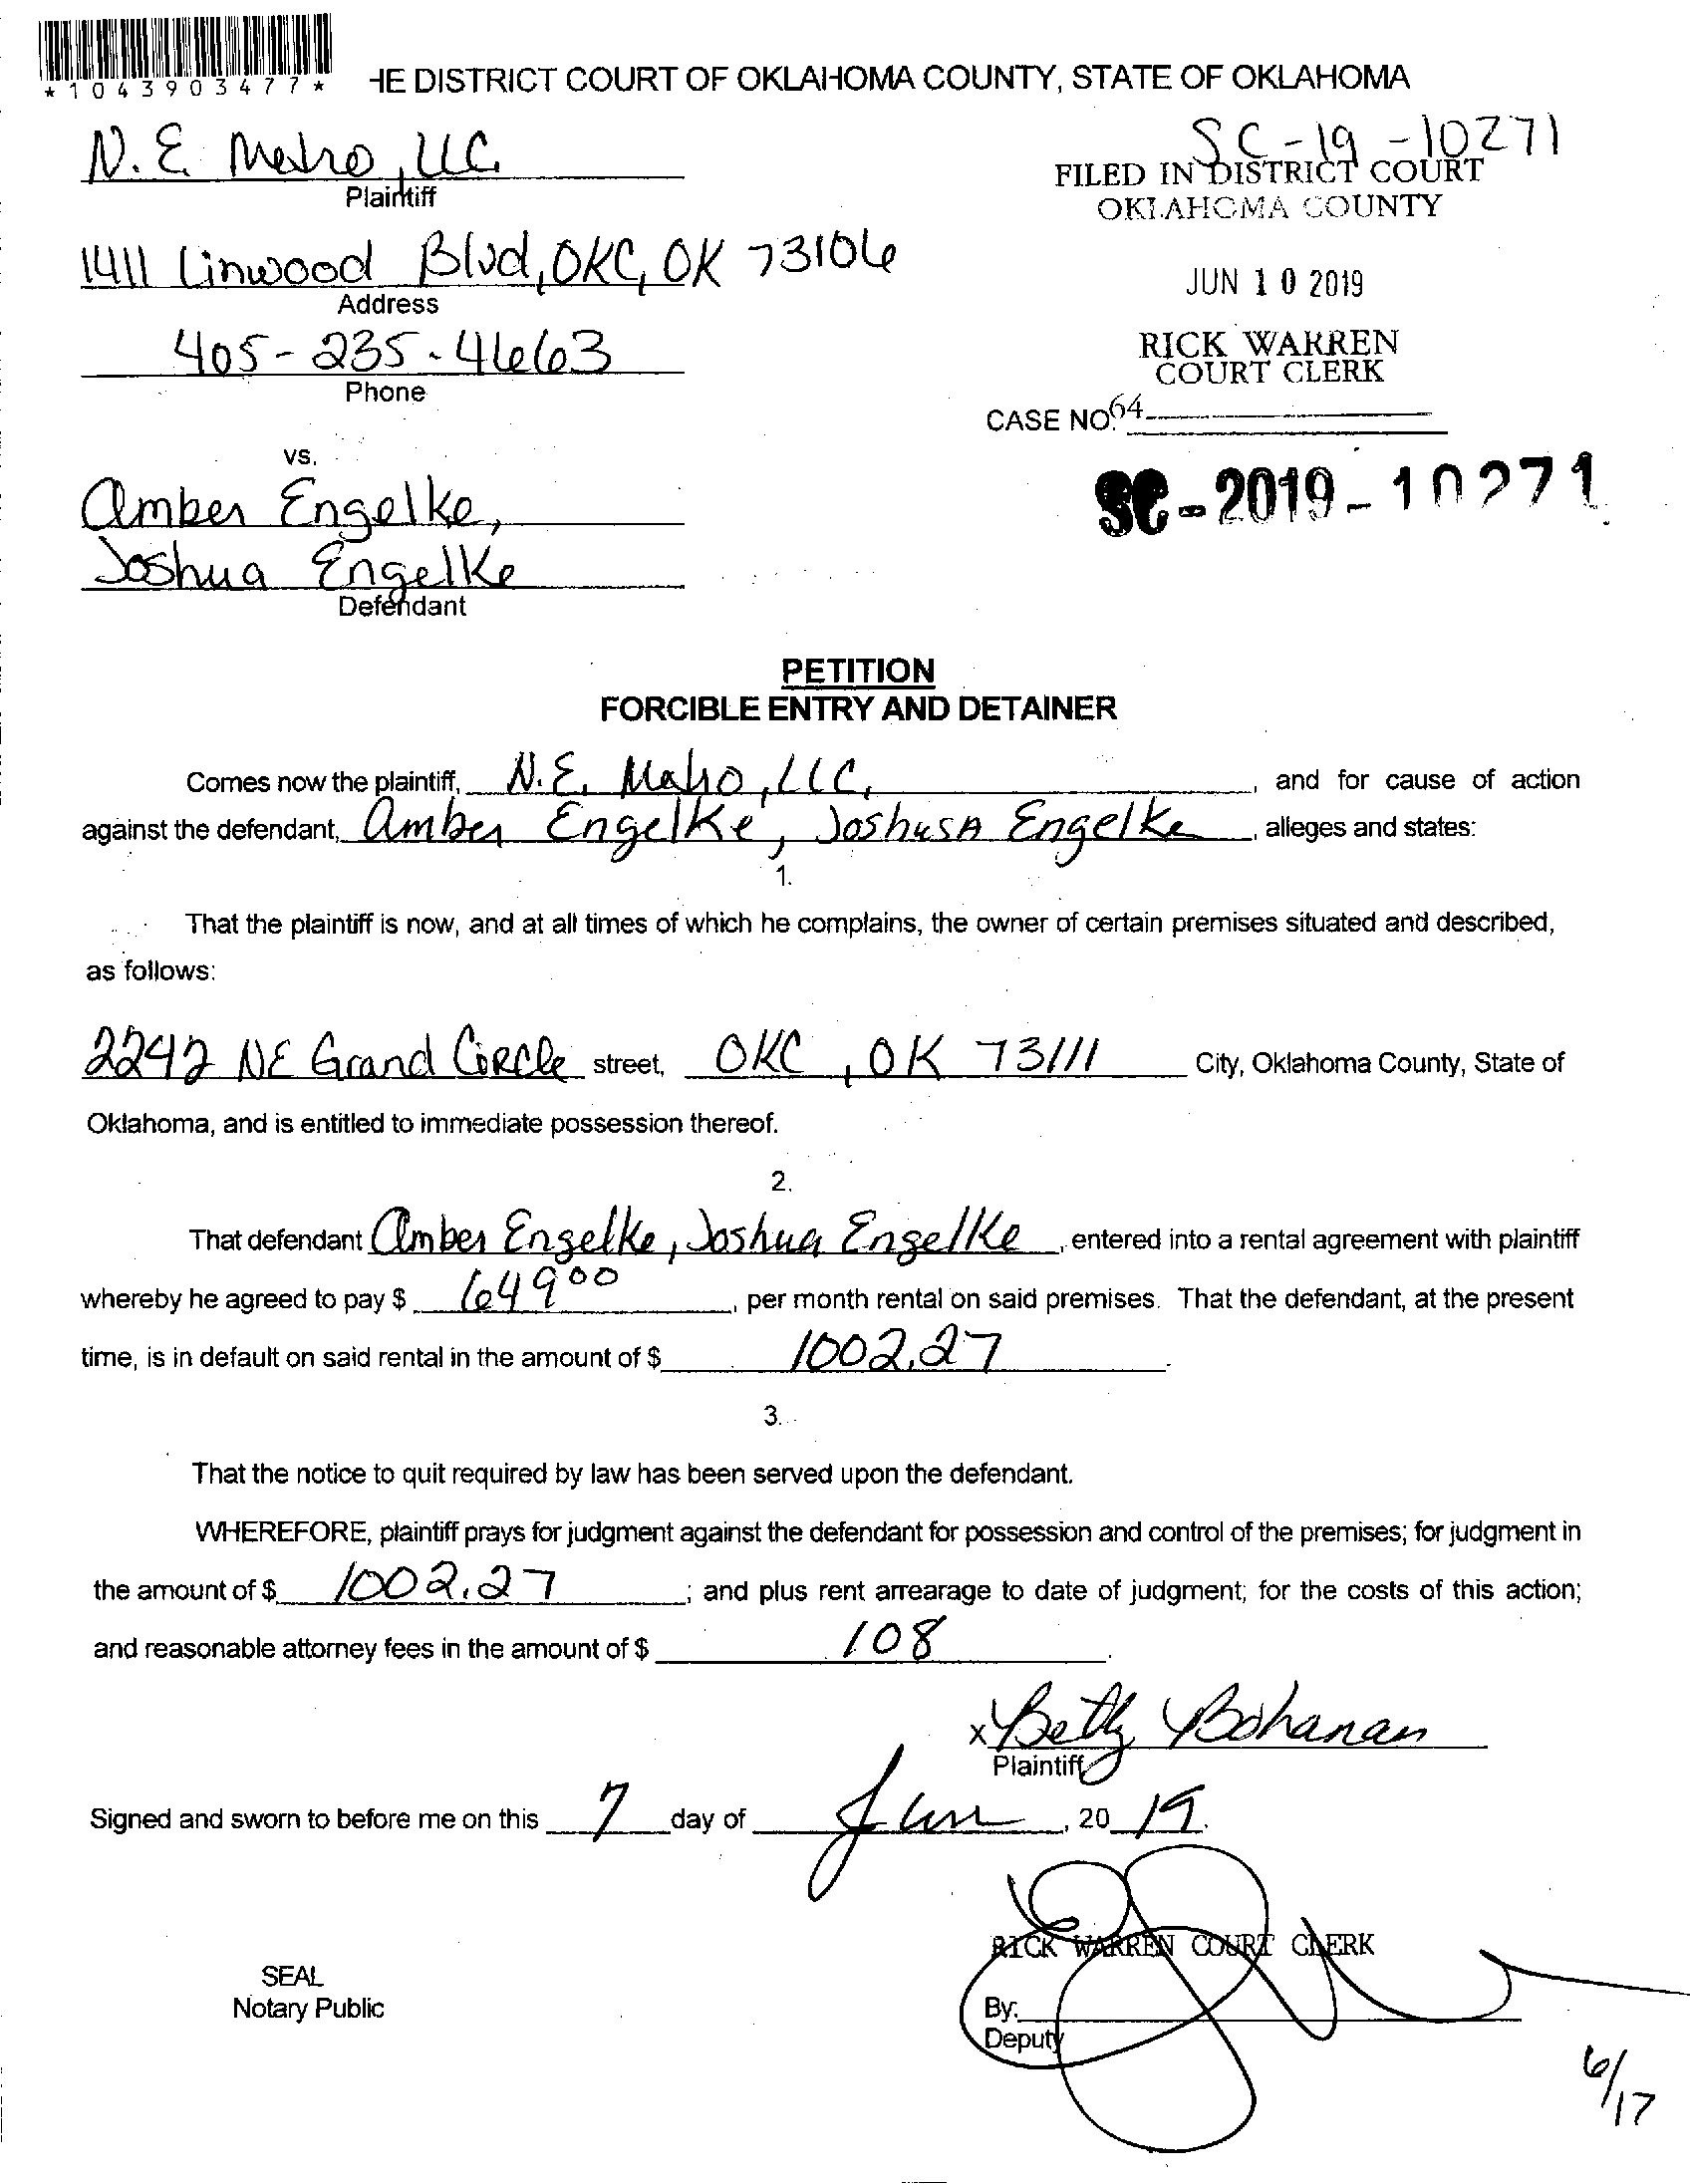 *1043903477*
HE DISTRICT COURT OF OKLAHOMA COUNTY, STATE OF OKLAHOMA
N.E. Metro, LLC
SC-19-10271
Plaintiff
FILED IN DISTRICT COURT
OKLAHOMA COUNTY
1411 Linwood Blvd, OKC, OK 73106
Address
JUN 10 2019
405-235-4663
Phone
RICK WARREN
COURT CLERK
CASE NO. 64
vs.
Amber Engelke,
SC-2019-10271
Joshua Engelke
Defendant
PETITION
FORCIBLE ENTRY AND DETAINER
Comes now the plaintiff, N.E. Metro, LLC, , and for cause of action
against the defendant, Amber Engelke, Joshua Engelke , alleges and states:
1.
That the plaintiff is now, and at all times of which he complains, the owner of certain premises situated and described,
as follows:
2242 NE Grand Circle street, OKC, OK 73111 City, Oklahoma County, State of
Oklahoma, and is entitled to immediate possession thereof.
2.
That defendant Amber Engelke, Joshua Engelke , entered into a rental agreement with plaintiff
whereby he agreed to pay $ 649 00 , per month rental on said premises. That the defendant, at the present
time, is in default on said rental in the amount of $ 1002.27 .
3.
That the notice to quit required by law has been served upon the defendant.
WHEREFORE, plaintiff prays for judgment against the defendant for possession and control of the premises; for judgment in
the amount of $ 1002.27 ; and plus rent arrearage to date of judgment; for the costs of this action;
and reasonable attorney fees in the amount of $ 108 .
x Betty Bohanan
Plaintiff
Signed and sworn to before me on this 7 day of Jun , 20 19.
RICK WARREN COURT CLERK
SEAL
Notary Public
By:
Deputy
6/17